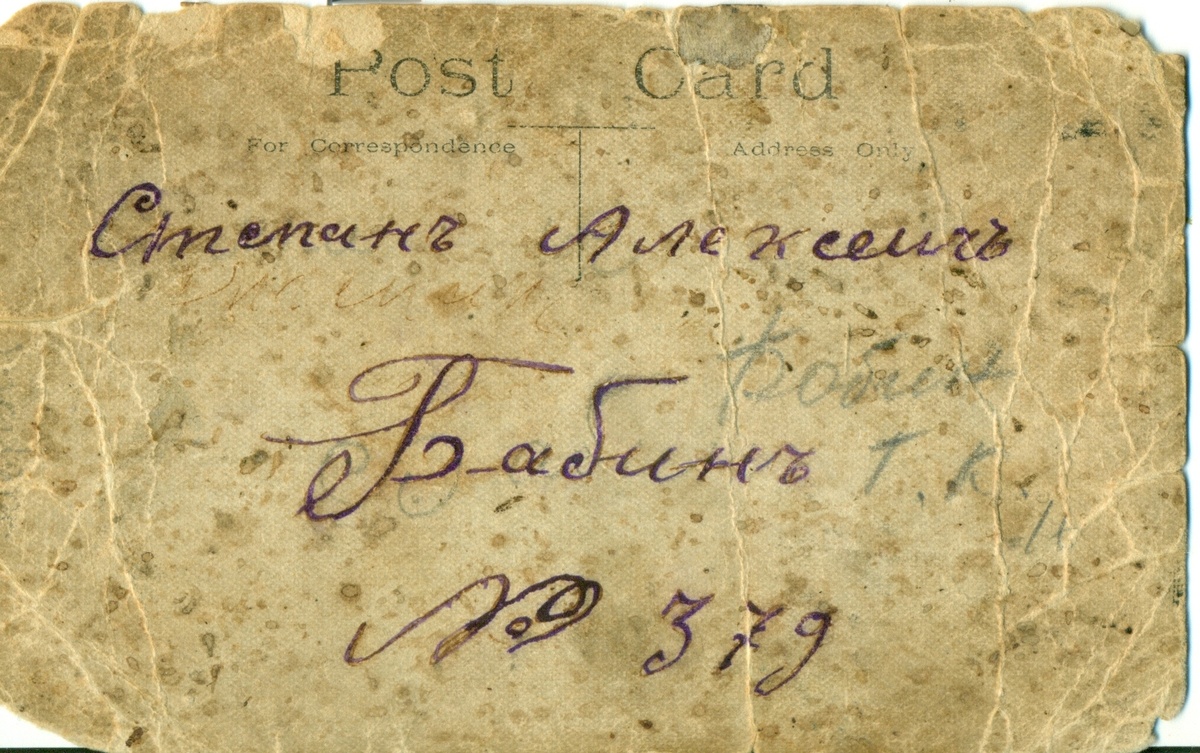 Post Card
For Correspondence Address Only
Степанъ Алексеичъ
Бабинъ
Бабин
Т. К.
№ 379